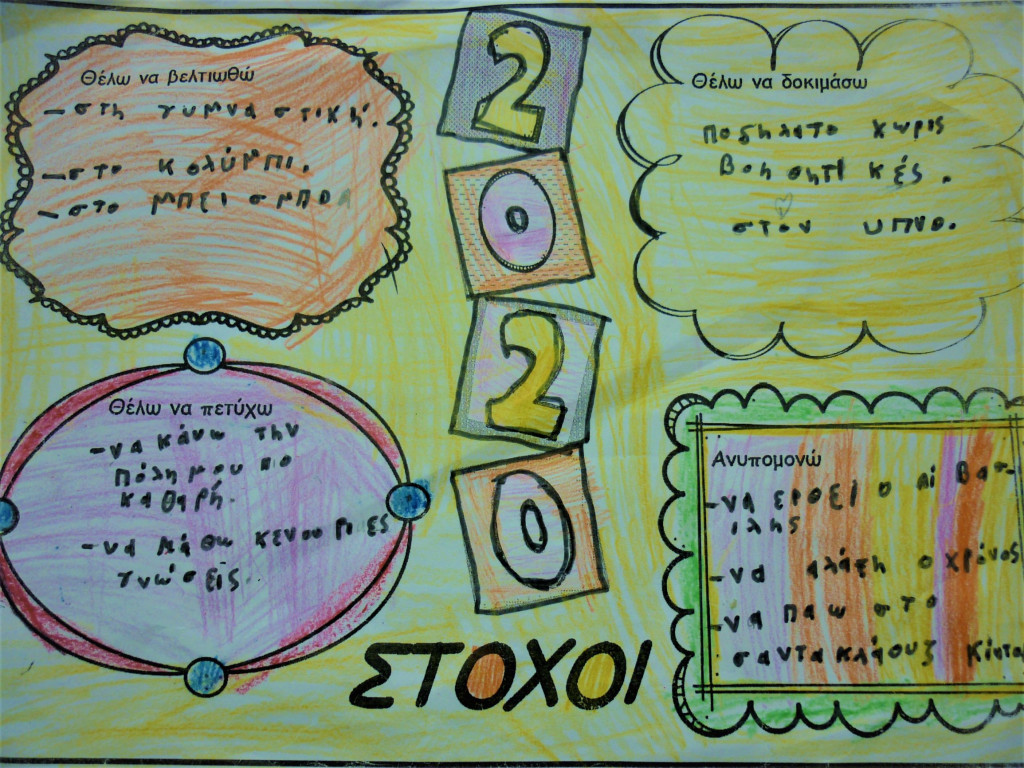 Θέλω να βελτιωθώ
- στη γυμναστική.
- στο κολύμπι.
- στο μπεισμπολ
2
0
2
0
Θέλω να δοκιμάσω
ποδηλατο χωρις
βοηθητικές.
στον υπνο.
Θέλω να πετύχω
- να κάνω την
πόλη μου πο
καθαρή.
- να μάθω κενουριες
γνώσεις.
Ανυπομονώ
- να ερθει ο αι Βασ-
ιλης
- να αλάξη ο χρόνος
- να παω στο
σαντα κλάουζ
ΣΤΟΧΟΙ